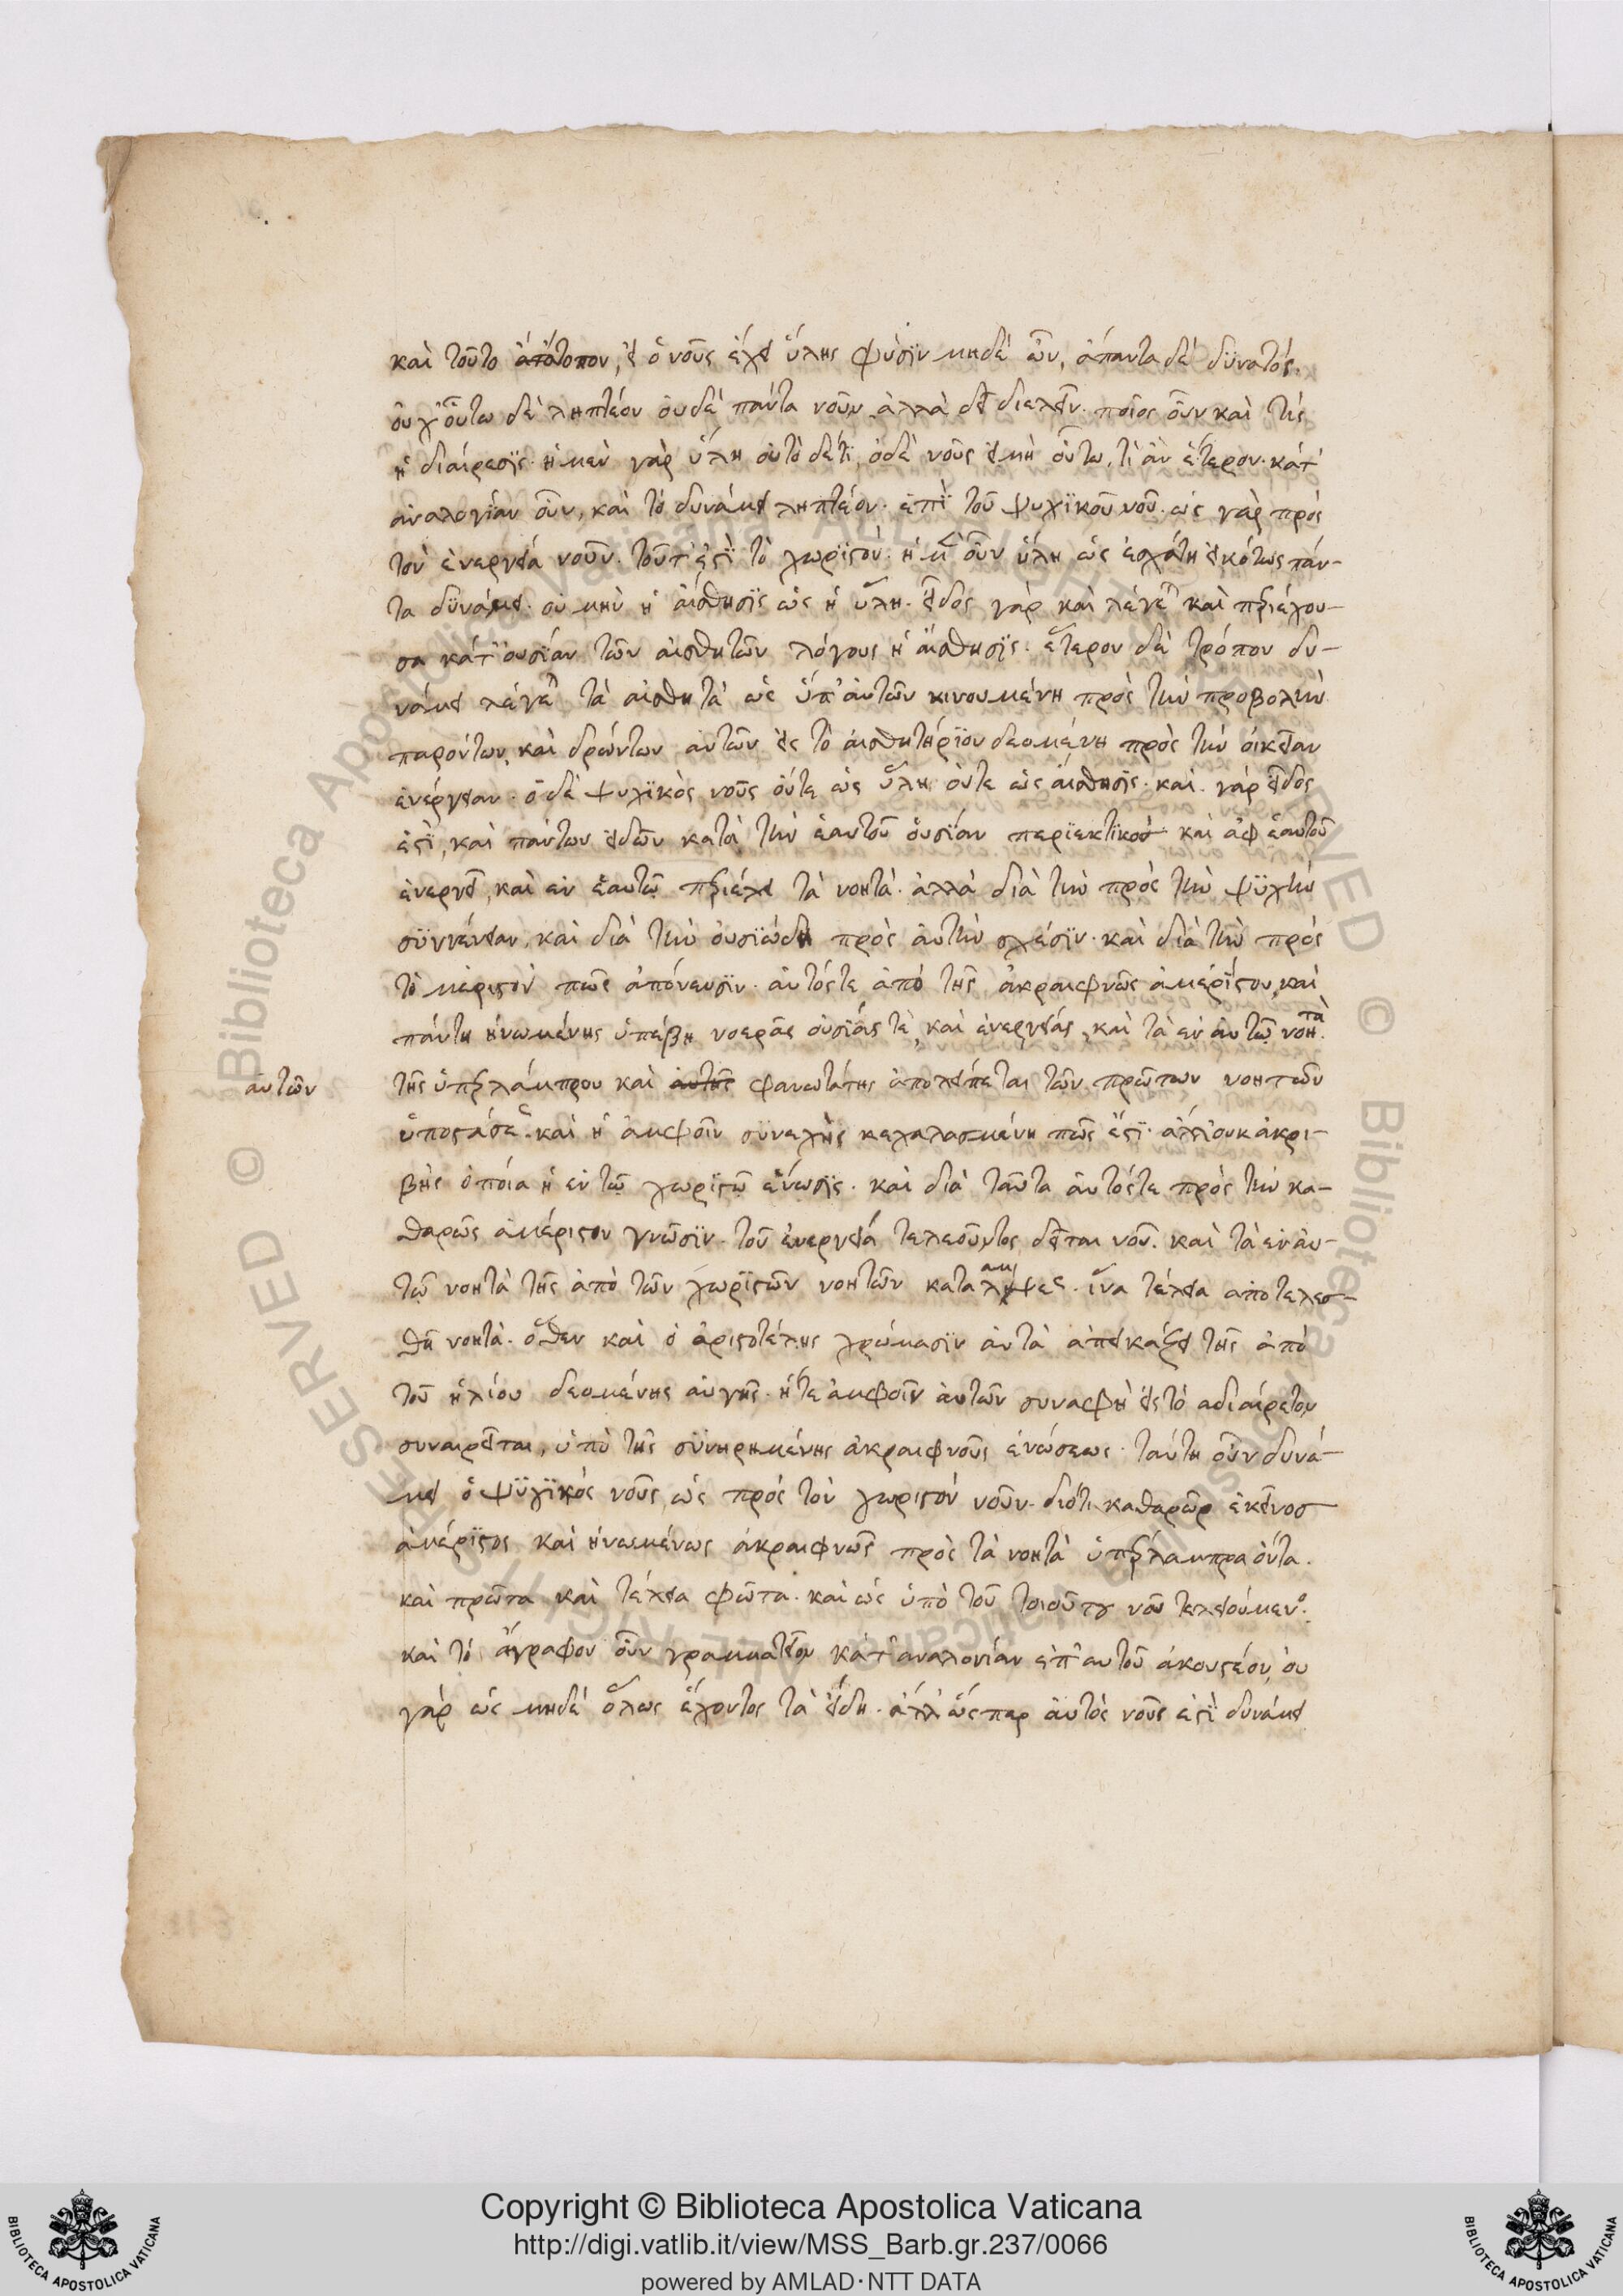 καὶ τοῦτο ἄτοπον, εἰ ὁ νοῦς ἔχει ὕλης φύσϊν μηδὲ ὢν, ἅπαντα δὲ δϋνατός.
οὐχ' οὕτω δὲ ληπτέον οὐδὲ πάντα νοῦν ἀλλὰ δεῖ διελεῖν. ποῖος οὖν καὶ τίς
ἡ διαίρεσϊς. ἡ μεν γὰρ ὕλη οὐτὸ δέτϊ, ὁδὲ νοῦς εἰμὴ οὕτω, τί ἂν ἕτερον. κάτ'
ἀναλογίαν οὖν, και τὸ δυνάμει ληπτέον. ἐπὶ τοῦ ψυχϊκοῦ νοῦ. ὡς γὰρ πρὸς
τὸν ἐνεργεία νοῦν. τοῦτ' ἐστὶ τὸ χωρϊστόν. ἡ μὲν οὖν ὕλη ὡς ἐσχάτη εἰκότως πάν-
τα δϋνάμει. οὐ μὴν ἡ αἴσθησϊς ὡς ἡ ὕλη. εἶδος γὰρ και λέγεται καὶ περιέχου-
σα κάτ' οὐσϊάν τῶν αἰσθητῶν λόγους ἡ αἴσθησϊς. ἕτερον δὲ τρόπον δυ-
νάμει λέγεται τὰ αἰσθητὰ ὡς ὑπ' ἀυτῶν κινουμένη πρὸς τὴν προβολὴν
παρόντων, καὶ δρώντων ἀυτῶν εἰς τὸ αἰσθητήρϊον δεομένη πρὸς τὴν οἰκείαν
ἐνέργειαν. ὁ δὲ ψυχϊκὸς νοῦς οὔτε ὡς ὕλη οὔτε ὡς αἴσθησϊς. καὶ γὰρ εἶδος
ἐστὶ, καὶ πάντων εἰδῶν κατὰ τὴν ἑαυτοῦ οὐσϊαν περϊεκτϊκος και ἀφ ἑαυτοῦ
ἐνεργεῖ, καὶ ἐν ἑαυτῶ περιέχει τὰ νοητά. ἀλλὰ διὰ τὴν πρὸς τὴν ψϋχὴν
σϋγγένειαν, καὶ διὰ τὴν οὐσϊώδη πρὸς ἀυτὴν σχέσϊν. καὶ διὰ τὴν πρὸς
τὸ μεριστὸν πῶς ἀπόνευσϊν. ἀυτόςτε ἀπὸ τῆς ἀκραιφνῶς ἀμερίστου, καὶ
πάντη ἡνωμένης ὑπέβη νοερᾶς οὐσϊάς τὲ, καὶ ἐνεργείας, και τὰ ἐν αυτῶ νοητὰ.
ἀυτῶν
τῆς ὑπερλάμπρου και ἀυτῆς φανωτάτης ἀπολείπεται τῶν πρώτων νοητῶν
ὑποστάσεως. καὶ ἡ ἀμφοῖν σϋνεχὴς κεχαλασμένη πῶς ἐστϊ. ἀλλ' οὐκ ἀκρι-
βὴς ὁποία ἡ ἐν τῶ χωρϊστῶ ἕνωσϊς. και διὰ ταῦτα ἀυτόςτε πρὸς τὴν κα-
θαρῶς ἀμέριστον γνῶσϊν. τοῦ ἐνεργεία τελεοῦντος δεῖται νοῦ. καὶ τὰ ἐν ἀυ-
τῶ νοητὰ τῆς ἀπὸ τῶν χωρϊστῶν νοητῶν καταλάμψεως. ἵνα τέλεια ἀποτελεσ-
θῆ νοητὰ. ὅθεν καὶ ὁ ἀριστοτέλης χρώμασϊν ἀυτὰ ἀπεικάζει τῆς ἀπὸ
τοῦ ἡλίου δεομένης αὐγῆς. ἥτε ἀμφοῖν ἀυτῶν συναφὴ εἰς τὸ αδιαίρετον
συναιρεῖται, ὑπὸ τῆς σϋνηρημένης ἀκραιφνοῦς ἑνώσεως. ταύτη οὖν δυνά-
μει ὁ ψϋχϊκός νοῦς, ὡς πρὸς τὸν χωριστὸν νοῦν. διότι καθαρῶς ἐκεῖνος
ἀμέρϊστος καὶ ἡνωμένως ἀκραιφνῶς πρὸς τὰ νοητὰ ὑπερλαμπρα ὄντα.
καὶ πρῶτα καὶ τέλεια φῶτα. καὶ ὡς ὑπὸ τοῦ τοιούτου νοῦ τελειούμενος.
και τὸ ἄγραφον οὖν γραμματεῖον κάτ' ἀναλογίαν ἐπ' αυτοῦ ἀκουστέον, οὐ
γὰρ ὡς μηδὲ ὅλως ἔχοντος τὰ εἴδη. ἀλλ' ὥςπερ ἀυτὸς νοῦς ἐστὶ δυνάμει
© Biblioteca Apostolica Vaticana ALL RIGHTS RESERVED
Copyright © Biblioteca Apostolica Vaticana
http://digi.vatlib.it/view/MSS_Barb.gr.237/0066
powered by AMLAD·NTT DATA
BIBLIOTECA APOSTOLICA VATICANA
BIBLIOTECA APOSTOLICA VATICANA